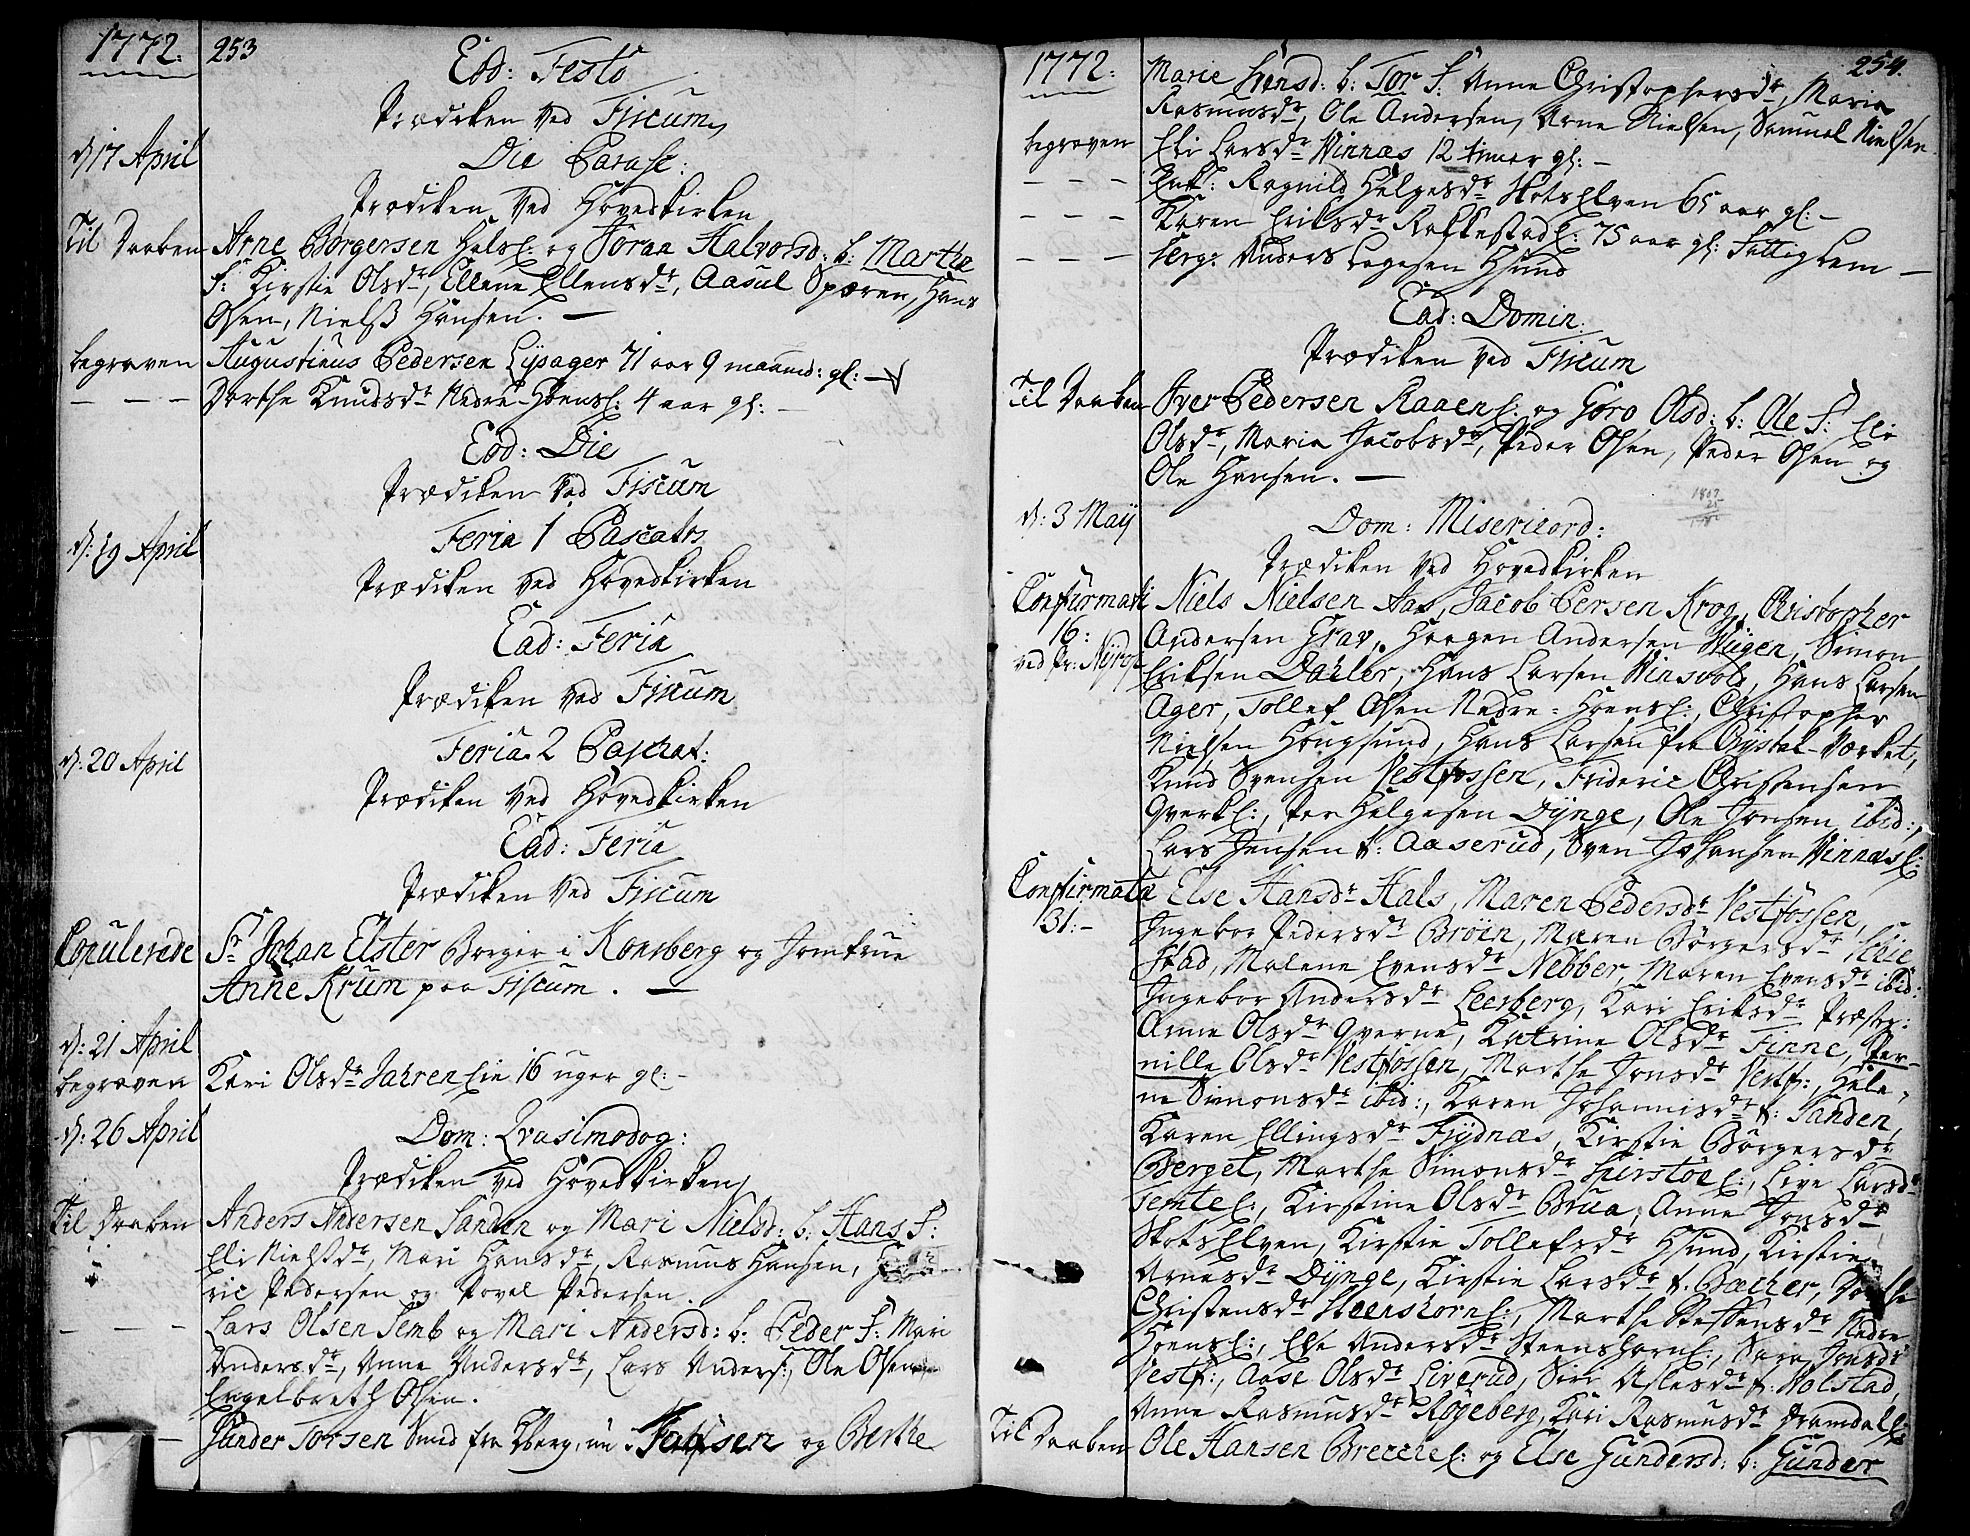 1772. 253
Eod: Festo
Prædiken ved Fiscum
d: 17 April
Die Parasc:
Prædiken ved Hovedkirken
Til Daaben Arne Børgersen Halsl: og Jøran Halvorsd: b: Marthe
f: Kirstie Olsdr, Ellene Ellensdr, Aasul Spæren, Hans
Olsen, Niels Hansen. —
begraven Augustinus Pedersen Lysager 71 aar 9 maaned: gl: —
— — — Dorthe Knudsdr Nedre-Hoensl: 4 aar gl: —
Eod: Die
Prædiken ved Fiscum
d: 19 April
Feria 1 Pascatos
Prædiken ved Hovedkirken
Ead: Feria
Prædiken ved Fiscum
d: 20 April
Feria 2 Paschat:
Prædiken ved Hovedkirken
Ead: Feria
Prædiken ved Fiscum
Copulerede Sr Johan Elster Borger i Konsberg og Jomfrue
Anne Krum paa Fiscum. —
d: 21 April
begraven Kari Olsdr Jahren 16 uger gl: —
d: 26 April
Dom: Qvasimodog:
Prædiken ved Hovedkirken
Til Daaben Anders Andersen Sanden og Mari Nielsd: b: Hans f:
Eli Nielsdr, Mari Hansdr, Rasmus Hansen,
ric Pedersen og Povel Pedersen.
— — — Lars Olsen Semb og Mari Andersd: b: Peder f: Mari
Andersdr, Anne Andersdr, Lars Anders:, Ole Olsen
Engelbreth Olsen.
— Gunder Torsen Smed fra og Berthe
1772. 254.
Marie Hensd: b: Tor f: Anne Christophersdr, Maria
Rasmusdr, Ole Andersen, Arne Nielsen, Samuel Nielsen
begraven Eli Larsdr Vinnæs 12 timer gl: —
— — — Enk: Ragnild Helgesdr Skotselven 65 aar gl: —
— — — Karen Eriksdr Rakkestadl: 75 aar gl: Fattiglem —
— — — Serg: Anders Hsund
Ead: Domin:
Prædiken ved Fiscum
Til Daaben Iver Pedersen Raaenl: og Goro Olsd: b: Ole f: Eli
Olsdr, Maria Jacobsdr, Peder Olsen, Peder Olsen og
Ole Hansen. —
d: 3 Maij
Dom: Misericord:
Prædiken ved Hovedkirken
Confirmati Niels Nielsen Aas, Jacob Persen Krog, Christopher
16: Andersen Grav, Haagen Andersen Weigen, Simon
ved Pr: Nyrop Eriksen Dahler, Hans Larsen Vinsvold, Hans Larsen
Ager, Tollef Olsen Nedre-Hoensl:, Christopher
Nielsen Hougsund, Hans Larsen fra Chrystal-Værket,
Knud Svensen Vestfossen, Frideric Christensen
Qverkl:, Per Helgesen Dynge, Ole Jonsen ibid:,
Lars Jensen v: Aaserud, Sven Johansen Vinnæsl:
Confirmatæ Else Hansdr Hals, Maren Pedersdr Vestfossen,
31:— Ingebor Pedersdr Brøin, Maren Børgersdr Schie
stad, Malene Evensdr Nebber, Maren Evensdr ibid:
Ingebor Andersdr Leerberg, Kari Eriksdr Præstg:
Anne Olsdr Qverne, Katrine Olsdr Finne, Per-
nille Olsdr Vestfossen, Marthe Jonsdr Vestf:, Hele-
ne Simonsdr ibid:, Karen Johannisdr v: Sanden,
Karen Ellingsdr Fiydnæs, Kirstie Børgersdr
Berget, Marthe Simonsdr, Live Larsdr
Temtel:, Kirstine Olsdr Brua, Anne Jonsdr
Skotselven, Kirstie Tollefsdr Hsund, Kirstie
Arnesdr Dynge, Kirstie Larsdr v: Bæcher, Dorthe
Christensdr Steenshornl:, Marthe Steffensdr Nedre
Hoensl:, Else Andersdr Steenshornl:, Sara Jonsdr
Vestf:, Aase Olsdr Liverud, Siri Aslesdr v: Holstad,
Anne Rasmusdr Røgeberg, Kari Rasmusdr Dramdall:
Til Daaben Ole Hansen Breccel: og Else Gundersd: b: Gunder